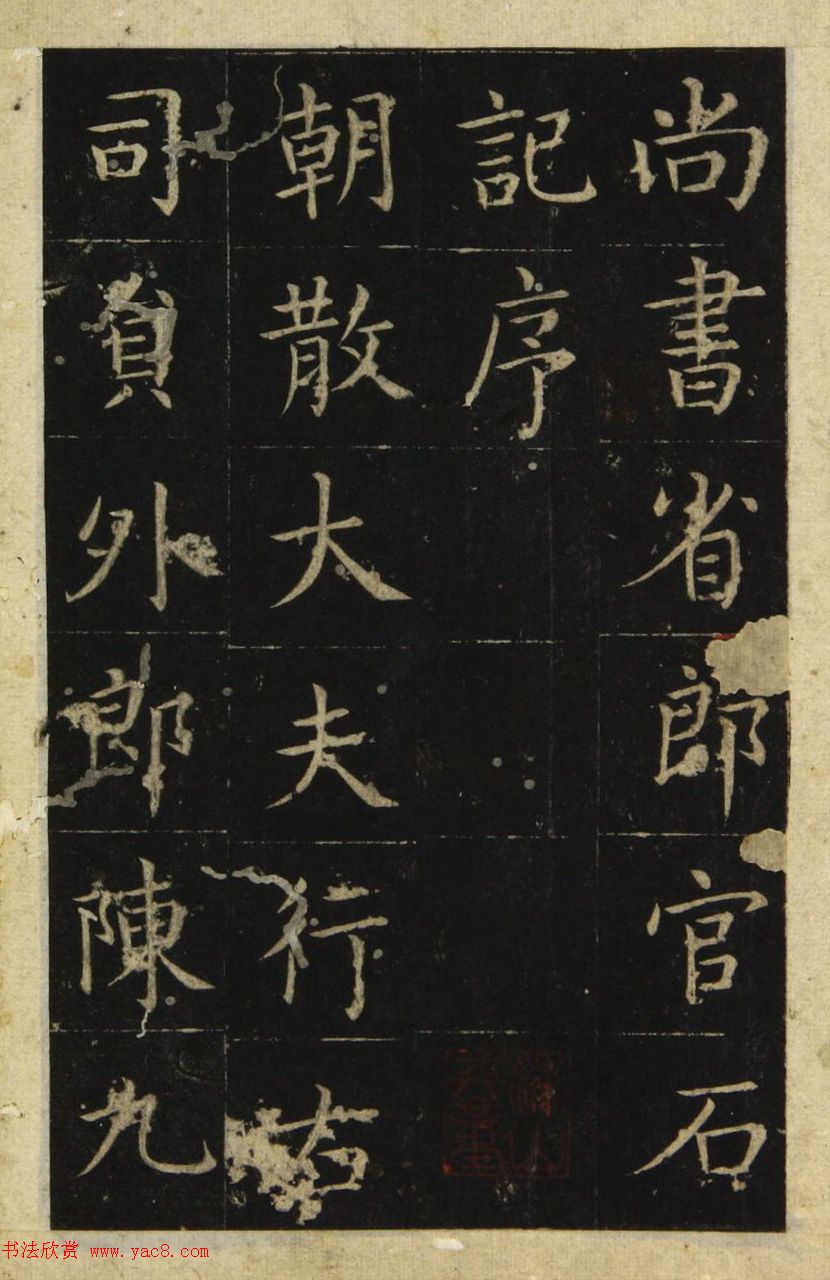 尚書省郎官石
記序
朝散大夫行右
司貟外郎陳九
书法欣赏 www.yac8.com